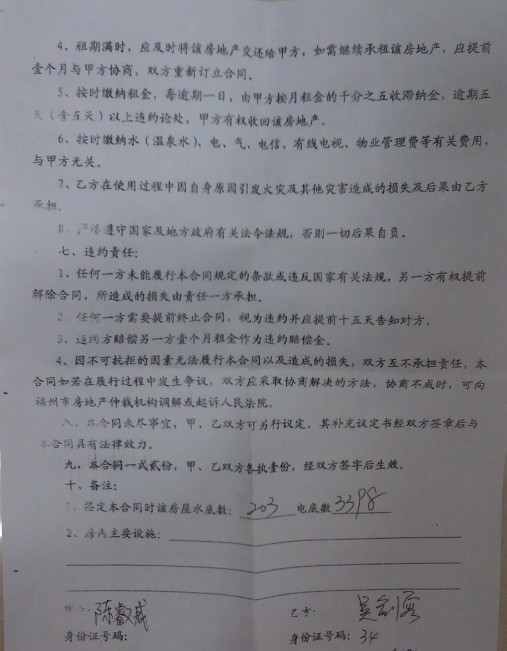 4、租期满时，应及时将该房地产交还给甲方，如需继续承租该房地产，应提前
壹个月与甲方协商，双方重新订立合同。
5、按时缴纳租金，每逾期一日，由甲方按月租金的千分之五收滞纳金，逾期五
天（含五天）以上违约论处，甲方有权收回该房地产。
6、按时缴纳水（温泉水）、电、气、电信、有线电视、物业管理费等有关费用，
与甲方无关。
7、乙方在使用过程中因自身原因引发火灾及其他灾害造成的损失及后果由乙方
承担。
8、严格遵守国家及地方政府有关法令法规，否则一切后果自负。
七、违约责任：
1、任何一方未能履行本合同规定的条款或违反国家有关法规，另一方有权提前
解除合同，所造成的损失由责任一方承担。
2、任何一方需要提前终止合同，视为违约并应提前十五天告知对方。
3、违约方赔偿另一方壹个月租金作为违约赔偿金。
4、因不可抗拒的因素无法履行本合同以及造成的损失，双方互不承担责任，本
合同如若在履行过程中发生争议，双方应采取协商解决的方法，协商不成时，可向
福州市房地产仲裁机构调解或起诉人民法院。
八、本合同未尽事宜，甲、乙双方可另行议定，其补充议定书经双方签章后与
本合同具有法律效力。
九、本合同一式贰份，甲、乙双方各执壹份，经双方签字后生效。
十、备注：
1、签定本合同时该房屋水底数：203 电底数3398
2、房内主要设施：
陈睿威 乙方：吴剑
身份证号码： 身份证号码：34